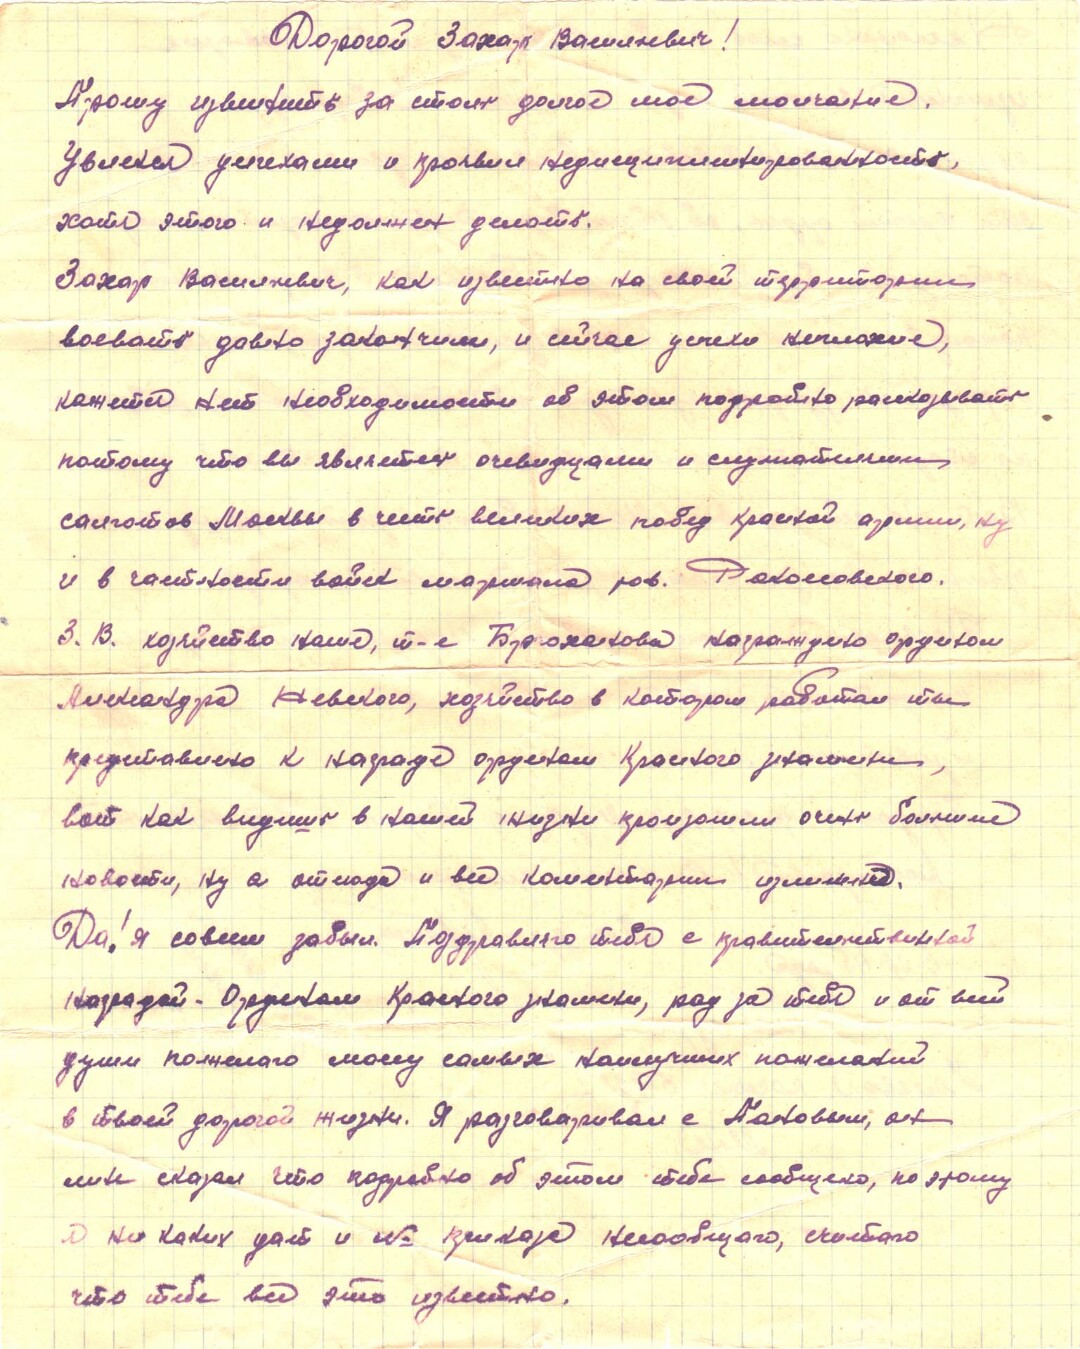 Дорогой Захар Васильевич!
Прошу извинить за столь долгое мое молчание.
Увлекся успехами и проявил недисциплинированность,
хотя этого и недолжен делать.
Захар Васильевич, как известно на своей территории
воевать давно закончили, и сейчас успехи неплохие,
кажется нет необходимости об этом подробно расказывать
потому что вы являетесь очевидцами и слушателями
салютов Москвы в честь великих побед красной армии, ну
и в частности войск маршала тов. Рокоссовского.
З. В. хозяйство наше, т-е награждено орденом
Александра Невского, хозяйство в котором работал ты
представлено к награде орденом Красного знамени,
вот как видишь в нашей жизни произошли очень большие
новости, ну а отсюда и все коментарии излишне.
Да! я совсем забыл. Поздравляю тебя с правительственной
наградой - Орденом Красного знамени, рад за тебя и от всей
души пожелаю массу самых наилучших пожеланий
в твоей дорогой жизни. Я разговаривал с Пановым, он
мне сказал что подробно об этом тебе сообщено, по этому
я ни каких дат и № приказа несообщаю, считаю
что тебе все это известно.